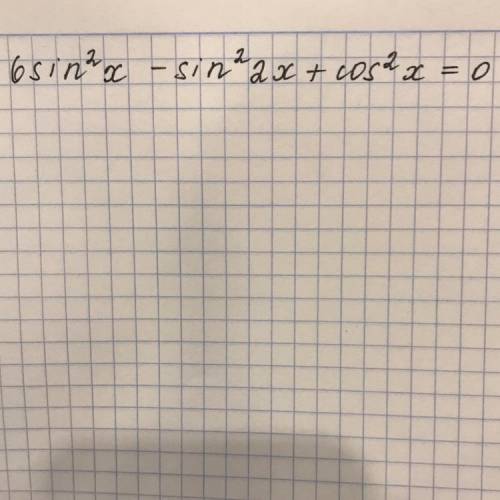 6sin²x - sin²2x + cos²x = 0